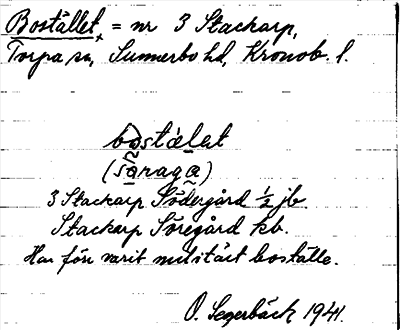 Bostället, = nr 3 Stackarp,
Torpa sn, Sunnerbo hd, Kronob. l.
bostället
(säraga)
3 Stackarp Södergård 1/2 jb.
Stackarp Söregård kb.
Har förr varit militärt boställe.
O. Segerbäck 1941.